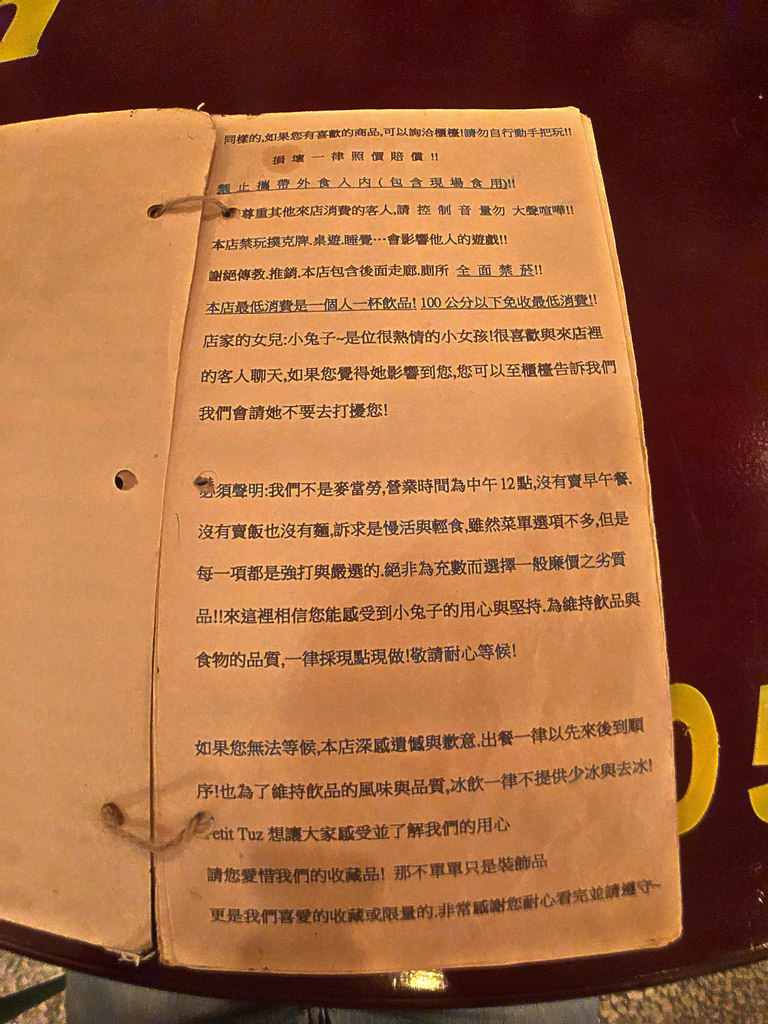 同樣的,如果您有喜歡的商品,可以詢洽櫃檯!請勿自行動手把玩!!
損壞一律照價賠償!!
禁止攜帶外食入內(包含現場食用)!!
尊重其他來店消費的客人,請 控制音量勿 大聲喧嘩!!
本店禁玩撲克牌.桌遊.睡覺…會影響他人的遊戲!!
謝絕傳教.推銷.本店包含後面走廊.廁所 全面禁菸!!
本店最低消費是一個人一杯飲品! 100 公分以下免收最低消費!!
店家的女兒:小兔子~是位很熱情的小女孩!很喜歡與來店裡
的客人聊天,如果您覺得她影響到您,您可以至櫃檯告訴我們
我們會請她不要去打擾您!
必須聲明:我們不是麥當勞,營業時間為中午 12 點,沒有賣早午餐.
沒有賣飯也沒有麵,訴求是慢活與輕食,雖然菜單選項不多,但是
每一項都是強打與嚴選的.絕非為充數而選擇一般廉價之劣質
品!!來這裡相信您能感受到小兔子的用心與堅持.為維持飲品與
食物的品質,一律採現點現做!敬請耐心等候!
如果您無法等候,本店深感遺憾與歉意.出餐一律以先來後到順
序!也為了維持飲品的風味與品質,冰飲一律不提供少冰與去冰!
etit Tuz 想讓大家感受並了解我們的用心
請您愛惜我們的收藏品! 那不單單只是裝飾品
更是我們喜愛的收藏或限量的.非常感謝您耐心看完並請遵守~
05